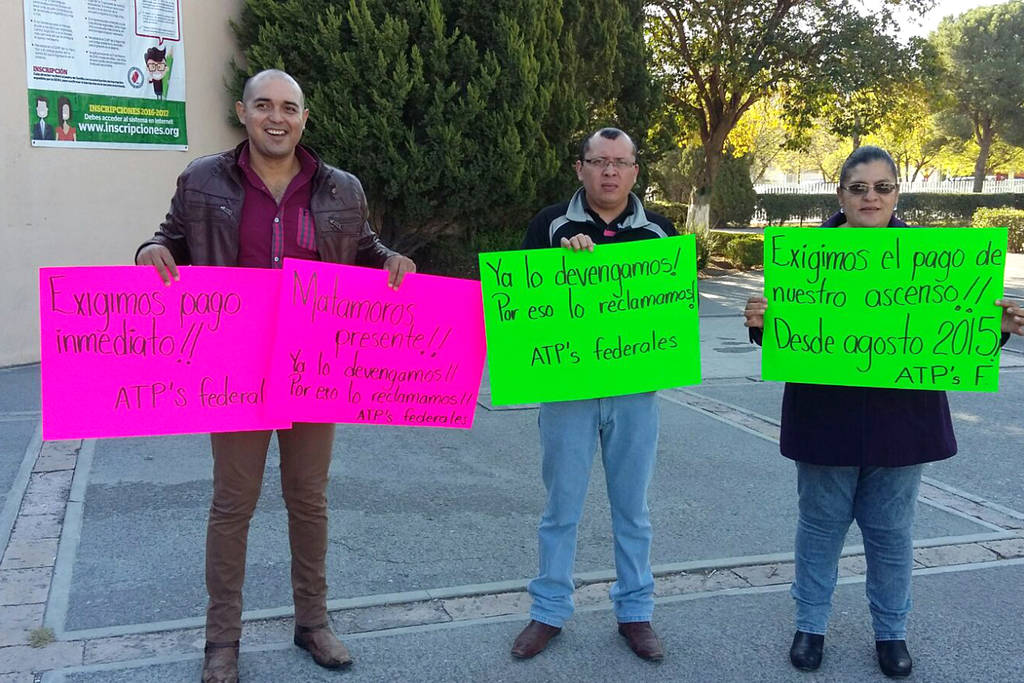 INSCRIPCIÓN
INSCRIPCIONES 2016-2017
Debes acceder al sistema en Internet
www.inscripciones.org
Exigimos pago
inmediato!!
ATP's federal
Matamoros
presente!!
Ya lo devengamos!!
Por eso lo reclamamos!!
ATP's federales
Ya lo devengamos!
Por eso lo reclamamos!
ATP's federales
Exigimos el pago de
nuestro ascenso!!
Desde agosto 2015!
ATP's F